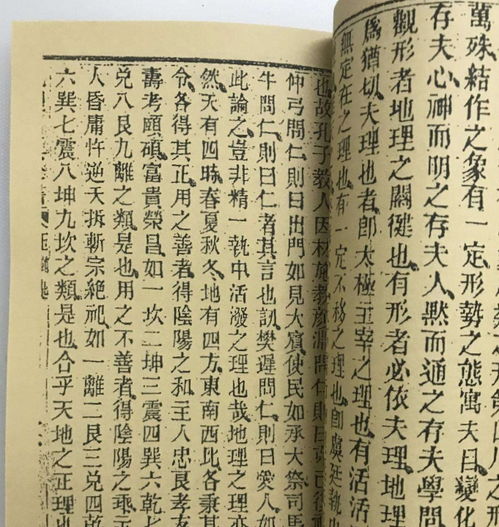 萬殊結作之象有一定形勢之態寓夫目變化
存夫心神而明之存夫人默而通之存夫學問
觀形者地理之關健也有形者必依夫理地理
爲猶切夫理也者卽太極主宰之理也有活活
無定在之理也有一定不移之理也卽虞廷執
也故孔子教人因材施教顏淵問仁則曰克己復
仲弓問仁則曰出門如見大賔使民如承大祭司馬
牛問仁則曰仁者其言也訒樊遲問仁則曰愛人如
此論之豈非精一執中活潑之理也哉地理之理亦
然天有四時春夏秋冬地有四方東南西北各秉其
令各得其正用之善者得陰陽之和主人忠良孝友
壽考頤碩富貴榮昌如一坎二坤三震四巽六乾七
兌八艮九離之類是也用之不善者得陰陽之乖
人昏庸忤逆夭折斬宗絕祀如一離二艮三兌四乾
六巽七震八坤九坎之類是也合乎天地之正理